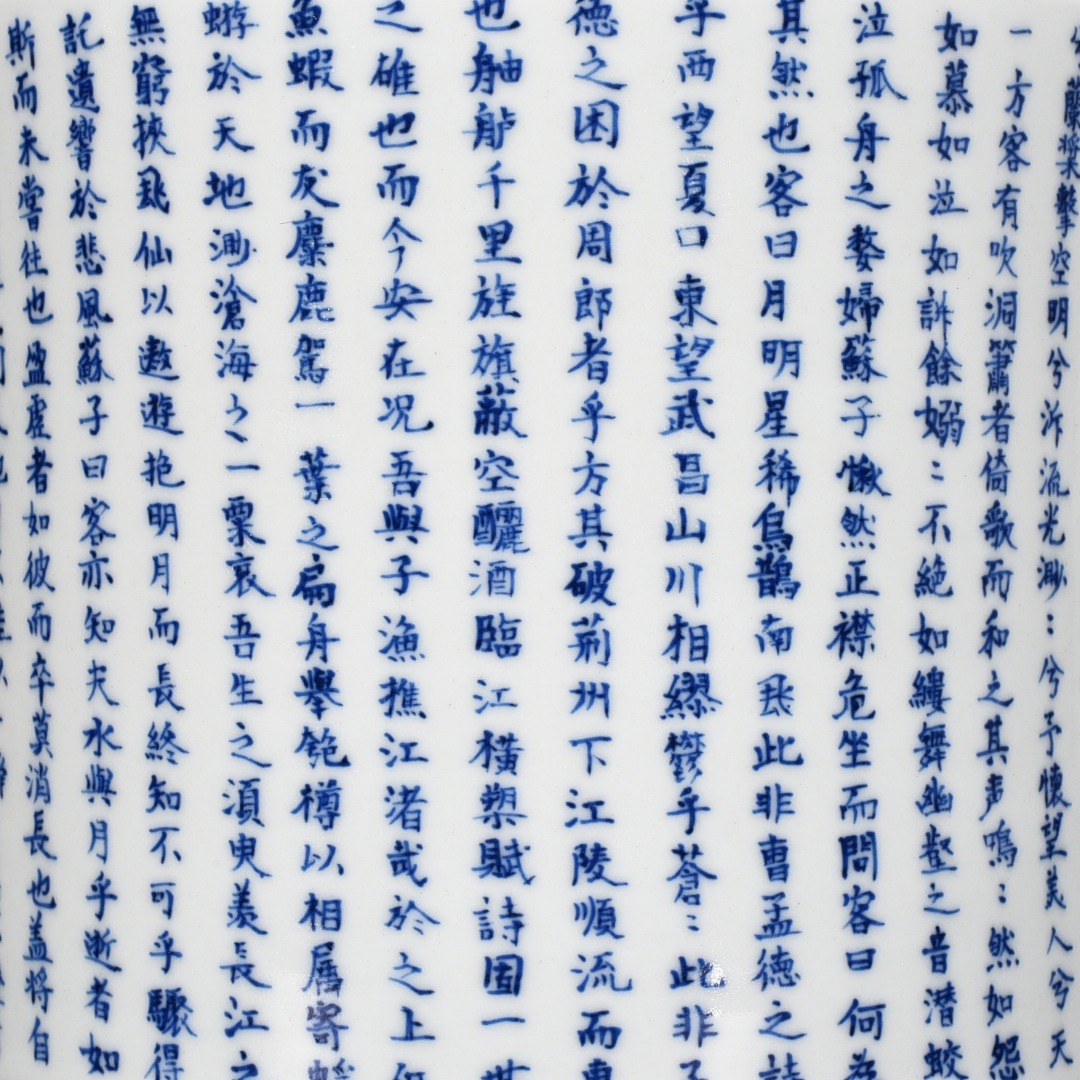 蘭槳擊空明兮泝流光渺〻兮予懷望美人兮天
一方客有吹洞簫者倚歌而和之其声鳴〻然如怨
如慕如泣如訴餘嫋〻不絶如縷舞幽壑之音潛蛟
泣孤舟之嫠婦蘇子愀然正襟危坐而問客曰何為
其然也客曰月明星稀烏鵲南飛此非曹孟德之詩
乎西望夏口東望武昌山川相繆欝乎蒼〻此非孟
德之困於周郎者乎方其破荊州下江陵順流而東
也舳艫千里旌旗蔽空釃酒臨江橫槊賦詩固一世
之雄也而今安在况吾與子漁樵江渚哉於之上侶
魚蝦而友麋鹿駕一葉之扁舟舉匏樽以相属寄蜉
蝣於天地渺滄海之一粟哀吾生之須臾羨長江之
無窮挾飛仙以遨遊抱明月而長終知不可乎驟得
託遺響於悲風蘇子曰客亦知夫水與月乎逝者如
斯而未嘗往也盈虛者如彼而卒莫消長也盖將自